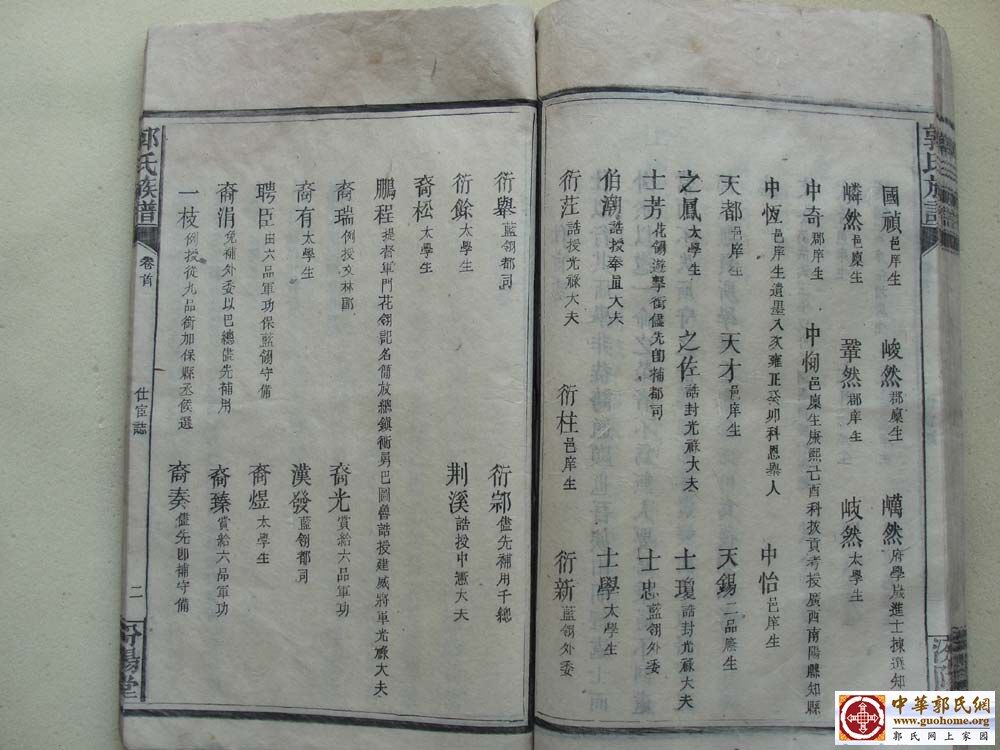 郭氏族譜
國禎邑庠生 峻然郡廩生 㠖然府學歲進士揀選知
嶙然邑廩生 鞏然郡庠生 岐然太學生
中奇郡庠生 中恂邑廩生康熙己酉科拔貢考授廣西南陽縣知縣
中恆邑庠生遺墨入文雍正癸卯科恩舉人 中怡邑庠生
天都邑庠生 天才邑庠生 天錫二品廕生
之鳳太學生 之佐誥封光祿大夫 士瓊誥封光祿大夫
士芳花翎遊擊銜儘先卽補都司 士忠藍翎外委
伯潮誥授奉直大夫 士學太學生
衍莊誥授光祿大夫 衍柱邑庠生 衍新藍翎外委
衍舉藍翎都司 衍鄒儘先補用千總
衍餘太學生 荆溪誥授中憲大夫
裔松太學生
鵬程提督軍門花翎記名簡放總鎮銜勇巴圖魯誥授建威將軍光祿大夫
裔瑞例授文林郎 裔光賞給六品軍功
裔有太學生 漢發藍翎都司
聘臣由六品軍功保藍翎守備 裔煜太學生
裔涓免補外委以巴總儘先補用 裔臻賞給六品軍功
一枝例授從九品銜加保縣丞候選 裔奏儘先卽補守備
郭氏族譜 卷首 仕宦誌 二 汾陽堂
中華郭氏網
www.guohome.org
郭氏網上家園